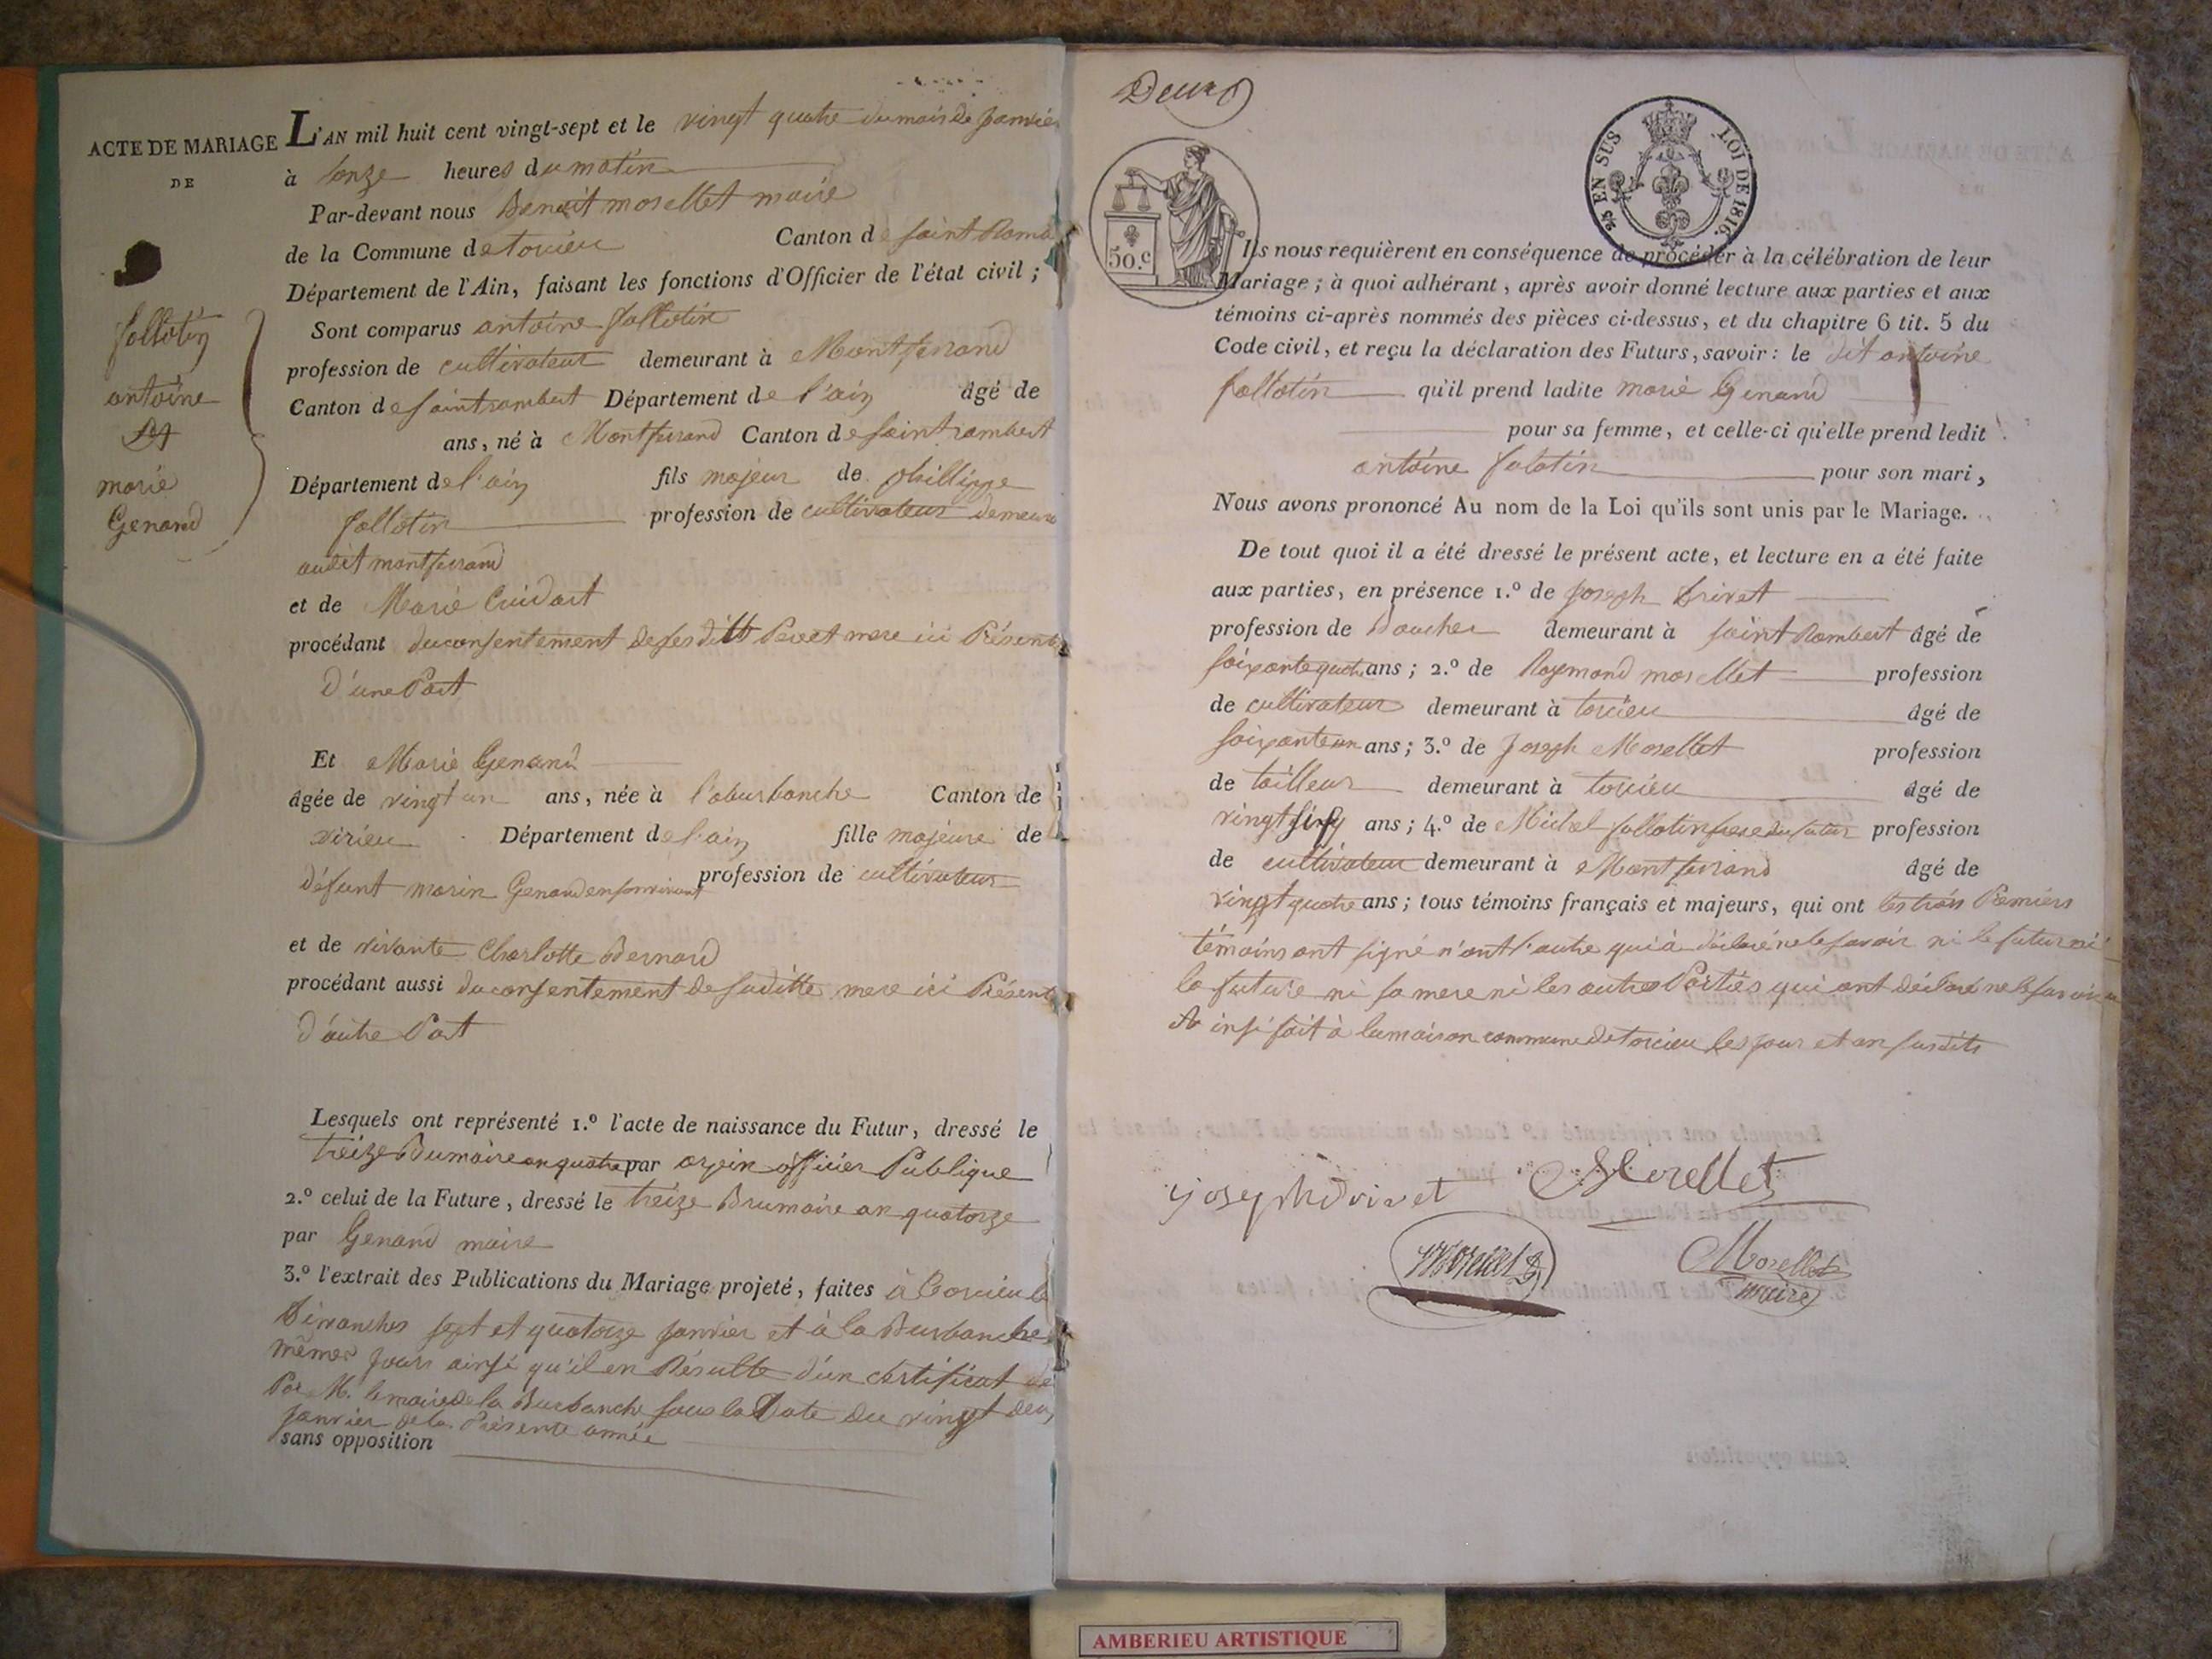 ACTE DE MARIAGE
DE
follotin
antoine
Et
marie
Genand
L'AN mil huit cent vingt-sept et le vingt quatre du mois de janvier
à onze heures du matin
Par-devant nous Benoit morellet maire
de la Commune de torcieu Canton de saint Ramb
Département de l'Ain, faisant les fonctions d'Officier de l'état civil ;
Sont comparus antoine follotin
profession de cultivateur demeurant à Montferrand
Canton de saint rambert Département de l'ain âgé de
ans, né à Montferrand Canton de saint rambert
Département de l'ain fils majeur de phillippe
follotin profession de cultivateur demeura
audit montferrand
et de Marie Cuidart
procédant du consentement de ses ditts Pere et mere ici Présents
D'une Part
Et Marie Genand
âgée de vingt un ans, née à l'aburbanche Canton de
virieu Département de l'ain fille majeure de
défunt marin Genand en son vivant profession de cultivateur
et de vivante Charlotte Bernard
procédant aussi du consentement de saditte mere ici Présente
d'autre Part
Lesquels ont représenté 1.º l'acte de naissance du Futur, dressé le
treize Bumaire an quatre par orjein officier Publique
2.º celui de la Future, dressé le treize Brumaire an quatorze
par Genand maire
3.º l'extrait des Publications du Mariage projeté, faites à torcieu le
Dimanches sept et quatorze janvier et à la Burbanche
mêmes jours ainsi qu'il en Résulte d'un certificat de
Par M. le maire de la Burbanche sous la Date du vingt deux
janvier de la Présente année
sans opposition
Deux
50.c
2/5 EN SUS
LOI DE 1816.
Ils nous requièrent en conséquence de procéder à la célébration de leur
Mariage ; à quoi adhérant, après avoir donné lecture aux parties et aux
témoins ci-après nommés des pièces ci-dessus, et du chapitre 6 tit. 5 du
Code civil, et reçu la déclaration des Futurs, savoir : le dit antoine
follotin qu'il prend ladite marie Genand
pour sa femme, et celle-ci qu'elle prend ledit
antoine folotin pour son mari,
Nous avons prononcé Au nom de la Loi qu'ils sont unis par le Mariage.
De tout quoi il a été dressé le présent acte, et lecture en a été faite
aux parties, en présence 1.º de joseph Drivet
profession de Boucher demeurant à saint Rambert âgé de
soixante quatre ans ; 2.º de Raymond morellet profession
de cultivateur demeurant à torcieu âgé de
soixante un ans ; 3.º de Joseph Morellet profession
de tailleur demeurant à torcieu âgé de
vingt sinq ans ; 4.º de Michel follotin frere du futur profession
de cultivateur demeurant à Montferrand âgé de
vingt quatre ans ; tous témoins français et majeurs, qui ont les trois Premiers
témoins ont signé n'ont l'autre qui à déclaré ne le savoir ni le futur ni
la future ni sa mere ni les autres Parties qui ont déclaré ne le savoir
Ainsi fait à la maison commune de torcieu les jour et an susdits
joseph drivet Morellet
Morellet
Morellet
maire
AMBERIEU ARTISTIQUE